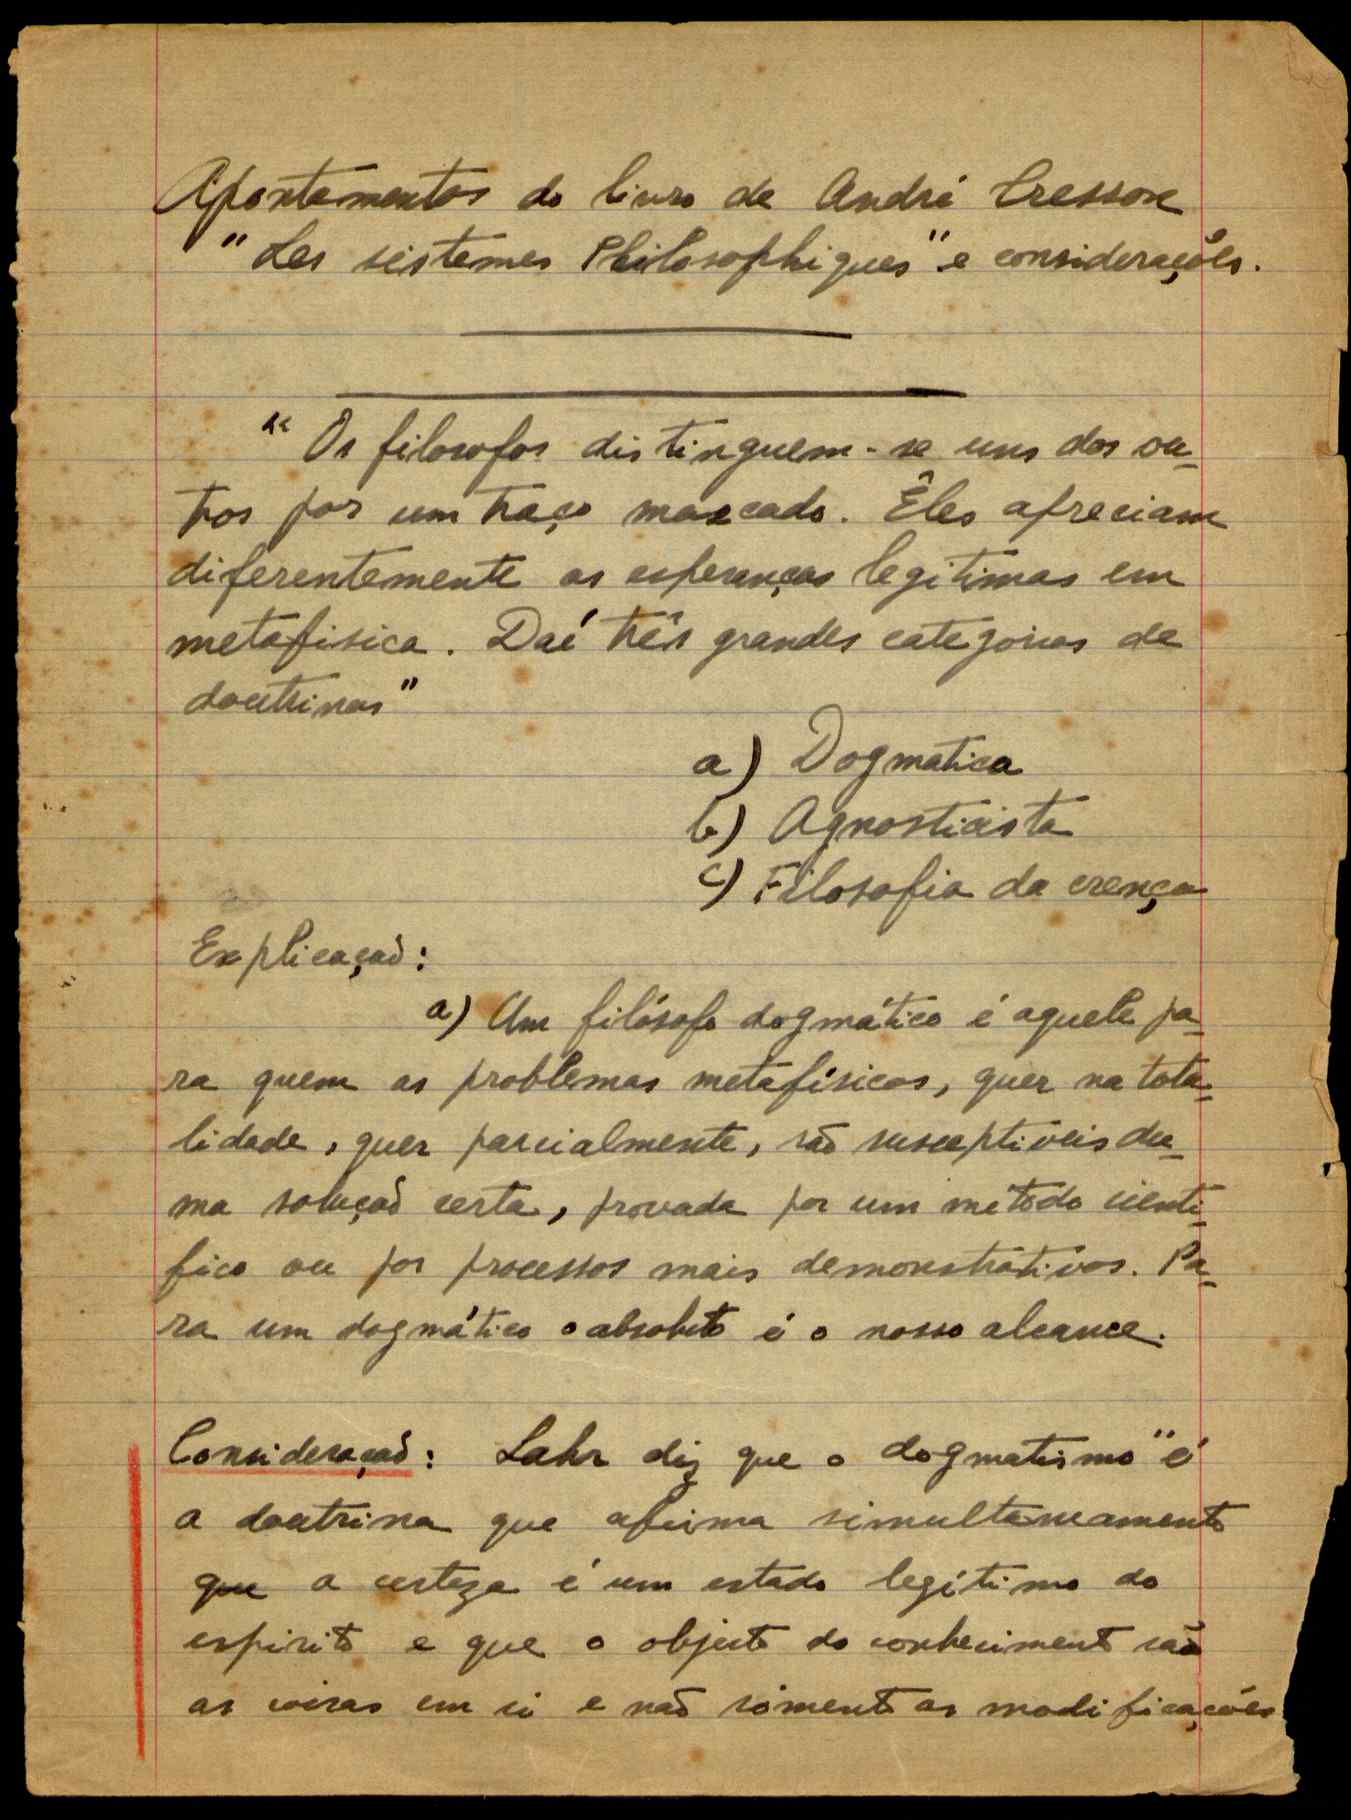 Apontamentos do livro de André Cresson
"Les sistemes Philosophiques" e considerações.
"Os filosofos distinguem-se uns dos ou-
tros por um traço marcado. Êles apreciam
diferentemente as esperanças legitimas em
metafisica. Daí três grandes categorias de
doutrinas"
a) Dogmatica
b) Agnosticista
c) Filosofia da crença
Explicação:
a) Um filósofo dogmático é aquele pa-
ra quem os problemas metafísicos, quer na tota-
lidade, quer parcialmente, são susceptiveis du-
ma solução certa, provada por um método cientí-
fico ou por processos mais demonstrativos. Pa-
ra um dogmático o absoluto é o nosso alcance.
Consideração: Lahr diz que o dogmatismo "é
a doutrina que afirma simultaneamente
que a certeza é um estado legítimo do
espirito e que o objecto do conhecimento são
as coisas em si e não sòmente as modificações